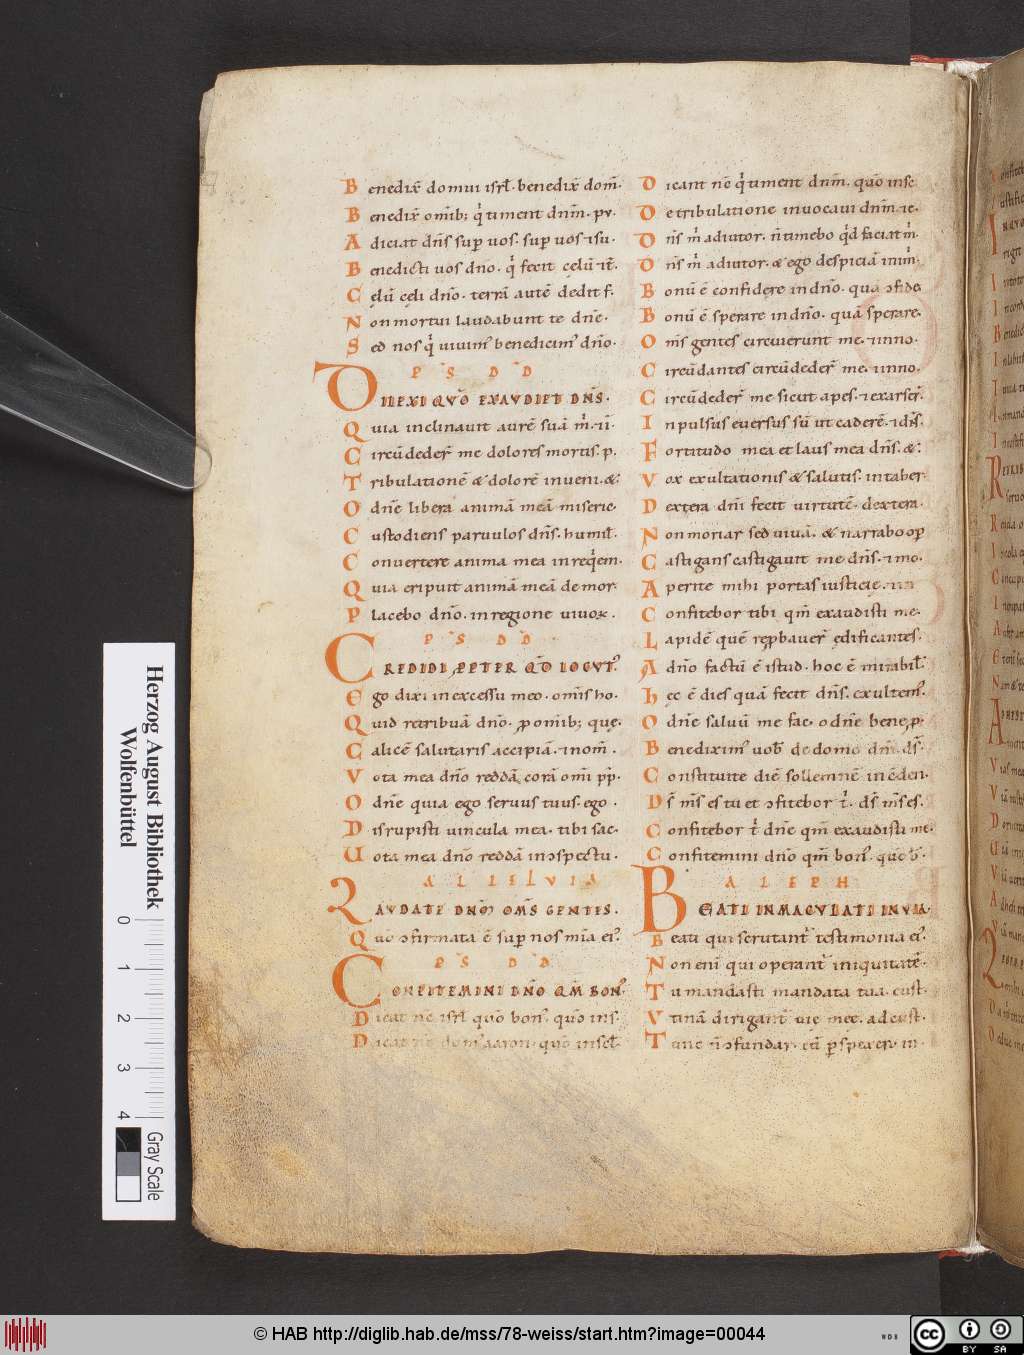 Benedix̄ domui isrl̄. benedix̄ dom̄.
Benedix̄ om̄ib; q̇ timent dn̄m. pu.
Adiciat dn̄s sup̄ uos. sup̄ uos ⁊ su.
Benedicti uos dn̄o. q̇ fecit cęlū ⁊ t̄.
Cęlū cęli dn̄o. terrā autē dedit f.
Non mortui laudabunt te dn̄e.
Sed nos q̇ uiuim᾽ benedicim᾽ dn̄o.
P̄S D̄D
DILEXI QUŌ EXAUDIET DN̄S.
Quia inclinauit aurē suā m̄.
Circūdeder̄ me dolores mortis. p.
Tribulationē & dolorē inueni. &
O dn̄e libera animā meā miseric
Custodiens paruulos dn̄s. humil̄.
Conuertere anima mea in req̇em.
Quia eripuit animā meā de mor
Placebo dn̄o. in regione uiuoꝝ.
P̄S D̄D
CREDIDI PPTER QD̄ LOCUT᾽
Ego dixi in excessu meo. om̄is ho.
Quid retribuā dn̄o. ꝓ om̄ib; quę.
Calicē salutaris accipiā. ⁊ nom̄.
Vota mea dn̄o reddā corā om̄i pp̄.
O dn̄e quia ego seruus tuus. ego.
Disrupisti uincula mea. tibi sac.
Uota mea dn̄o reddā in ɔspectu.
ALLELVIA
LAUDATE DN̄M OMS̄ GENTES.
Quō ɔfirmata ē sup̄ nos mīa ei᾽.
P̄S D̄D
CONFITEMINI DN̄O QM̄ BON᾽
Dicat nc̄ isrl̄ quō bon᾽. quō ins.
Dicat nc̄ dom᾽ aaron. quō in scl̄.
Dicant nc̄ q̇ timent dn̄m. quō in sc
De tribulatione inuocaui dn̄m. ⁊ e.
Dn̄s m̄ adiutor. n̄ timebo q̇d faciat m̄.
Dn̄s m̄ adiutor. & ego despiciā inim̄.
Bonū ē confidere in dn̄o. quā ɔfide
Bonū ē sperare in dn̄o. quā sperare.
Om̄s gentes circuierunt me. ⁊ in no.
Circūdantes circūdeder̄ me. ⁊ in no.
Circūdeder̄ me sicut apes. ⁊ exarser̄.
Inpulsus euersus sū ut caderē. ⁊ dn̄s.
Fortitudo mea et laus mea dn̄s. &
Vox exultationis & salutis. in taber
Dextera dn̄i fecit uirtutē. dextera.
Non moriar sed uiuā. & narrabo op̄
Castigans castigauit me dn̄s. ⁊ mo.
Aperite mihi portas iusticię.
Confitebor tibi qm̄ exaudisti me.
Lapidē quē rep̄bauer̄ ędificantes.
A dn̄o factū ē istud. hoc ē mirabil̄
Hęc ē dies quā fecit dn̄s. exultem᾽.
O dn̄e saluū me fac. o dn̄e bene p̄
Benedixim᾽ uob̄ de domo dn̄i ds̄.
Constituite diē sollemnē in cden.
Ds̄ m̄s es tu et ɔfitebor t̄. ds̄ m̄s es.
Confitebor t̄ dn̄e qm̄ exaudisti me.
Confitemini dn̄o qm̄ bon᾽. quō
ALEPH
BEATI INMACULATI IN VIA.
Beati qui scrutant᾽ testimonia ei᾽.
Non eni qui operant᾽ iniquitatē.
Tu mandasti mandata tua. cust.
Vtinā dirigant᾽ uię meę. ad cust.
Tunc n̄ ɔfundar. cū p̄spexero in
Herzog August Bibliothek
Wolfenbüttel
0 1 2 3 4
Gray Scale
© HAB http://diglib.hab.de/mss/78-weiss/start.htm?image=00044
WDB
cc BY SA